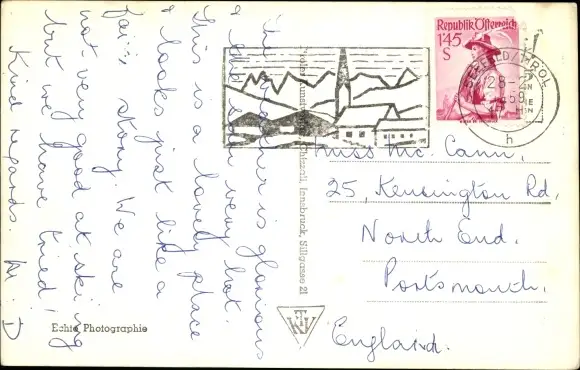 The weather is glorious
& sun very hot.
This is a lovely place
& looks just like a
fairy story. We are
not very good at ski-ing
but we have tried!
Kind regards.
Echte Photographie
Innsbruck, Sillgasse 21
Republik Österreich
1'45
S
SEEFELD/TIROL
28-2
59
h
Miss Mc. Cann.
25, Kensington Rd,
North End.
Portsmouth.
England.